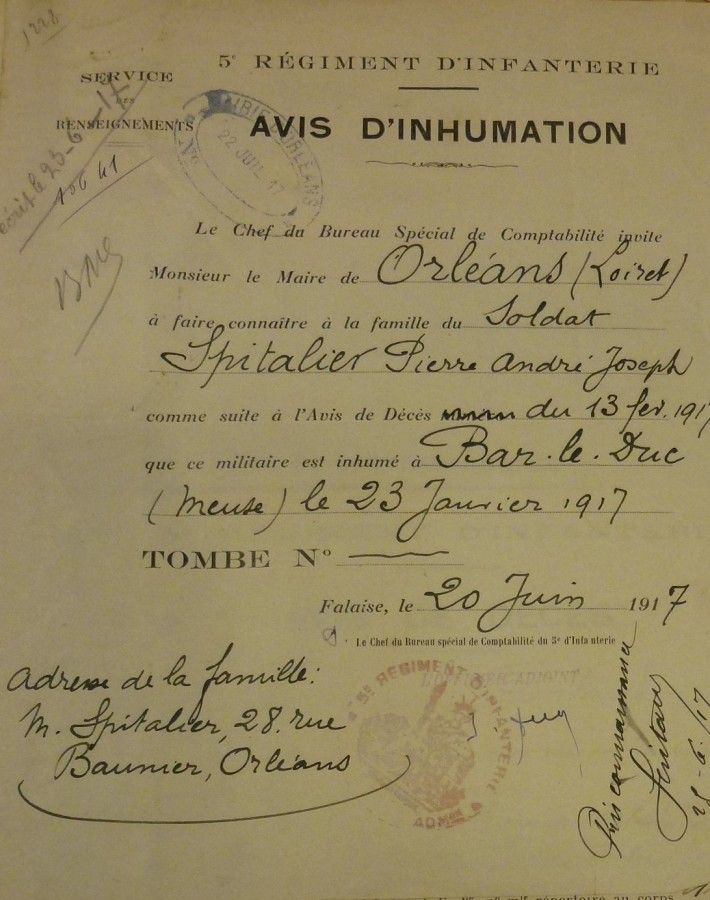 1228
5e RÉGIMENT D'INFANTERIE
SERVICE
DES
RENSEIGNEMENTS
écrit le 23-6-17
10641
MAIRIE D'ORLÉANS
22 JUIL. 17
AVIS D'INHUMATION
Le Chef du Bureau Spécial de Comptabilité invite
Monsieur le Maire de Orléans (Loiret)
à faire connaître à la famille du Soldat
Spitalier Pierre André Joseph
comme suite à l'Avis de Décès du 13 fév. 1917
que ce militaire est inhumé à Bar-le-Duc
(Meuse) le 23 Janvier 1917
TOMBE No
Falaise, le 20 Juin 1917
Le Chef du Bureau spécial de Comptabilité du 5e d'Infanterie
L'OFFICIER ADJOINT
5e RÉGIMENT D'INFANTERIE
Adresse de la famille:
M. Spitalier, 28. rue
Baunier, Orléans
Pris connaissance
25-6-17
répertoire au corps